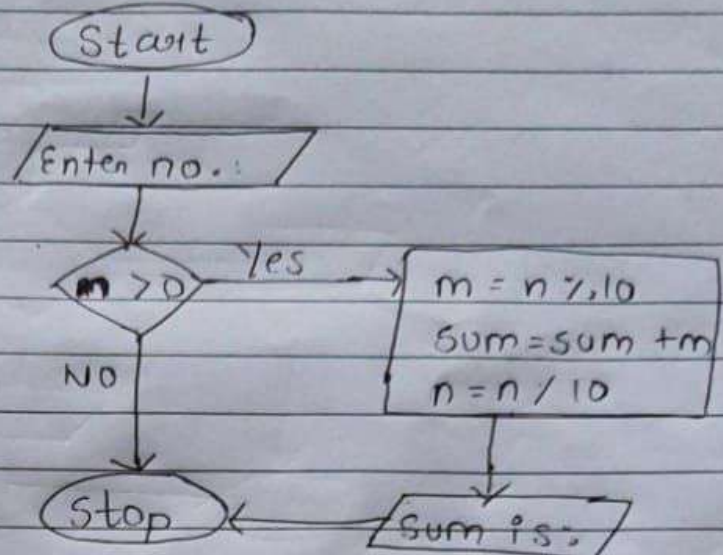 Start
Enter no.:
m > 0
Yes
m = n % 10
sum = sum + m
n = n / 10
NO
Stop
Sum is: